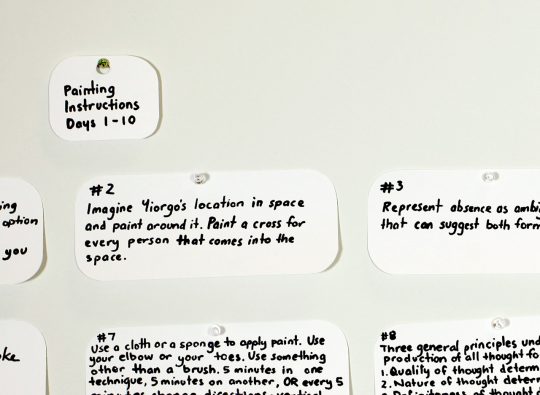 Painting
Instructions
Days 1-10
option
you
#2
Imagine Yiorgo's location in space
and paint around it. Paint a cross for
every person that comes into the
space.
#3
Represent absence as
that can suggest both
#7
Use a cloth or a sponge to apply paint. Use
your elbow or your toes. Use something
other than a brush. 5 minutes in one
technique, 5 minutes on another, OR every 5
#8
Three general principles
production of all thought
1. Quality of thought
2. Nature of thought